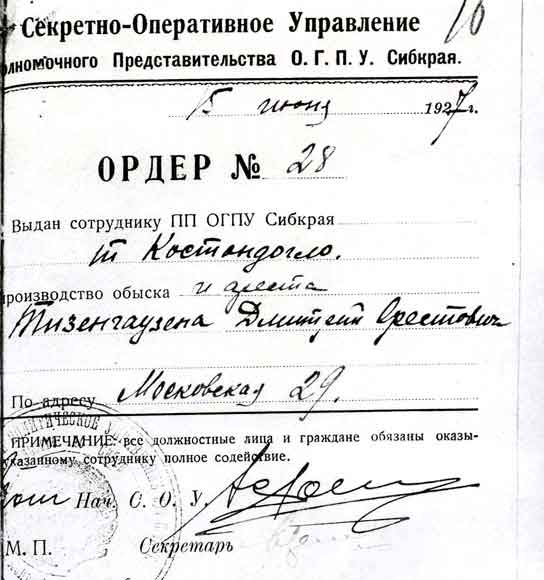 10
Секретно-Оперативное Управление
олномочного Представительства О. Г. П. У. Сибкрая.
15 июня 1927г.
ОРДЕР № 28
Выдан сотруднику ПП ОГПУ Сибкрая
т Костондогло.
производство обыска и ареста
Тизенгаузена Дмитрия Орестовича
По адресу Московская 29.
ПРИМЕЧАНИЕ: все должностные лица и граждане обязаны оказы-
указанному сотруднику полное содействие.
Нач. С. О. У.
М. П. Секретарь